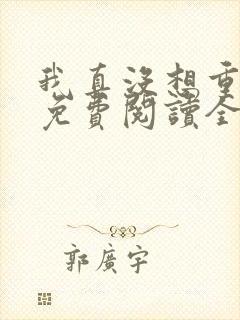 我真沒想重
免費閱讀全
郭廣宇